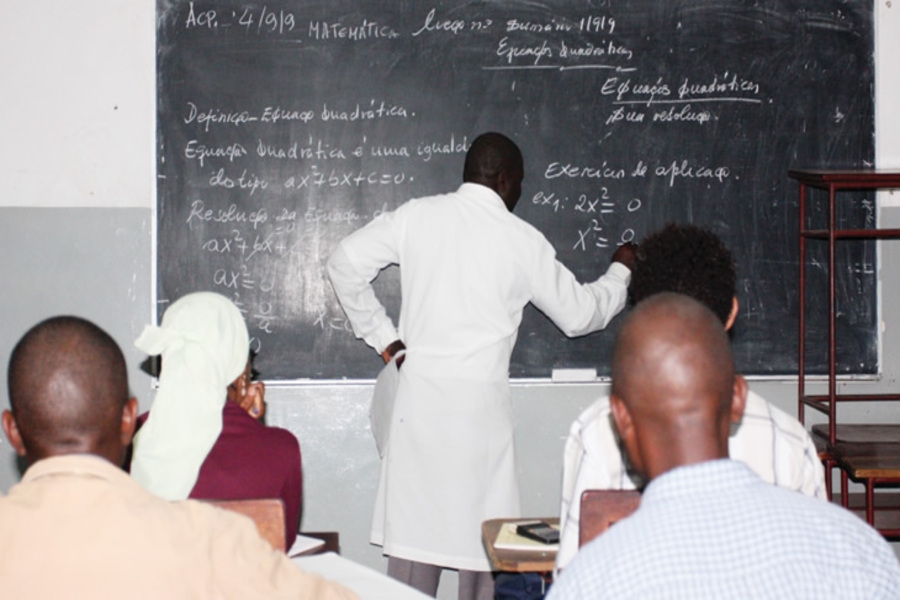 ACP... 4/9/9 MATEMÁTICA
1/9/9
Equaços Quadráticas
Equaços Quadráticas
Sua resoluço.
Definiço - Equaço Quadrática.
Equaço Quadrática é uma igual
do tipo ax²+bx+c=0.
Resoluço da Equaço
ax²+bx+
ax²=0
x=0
Exercício de aplicaço.
ex1: 2x²=0
x²=0